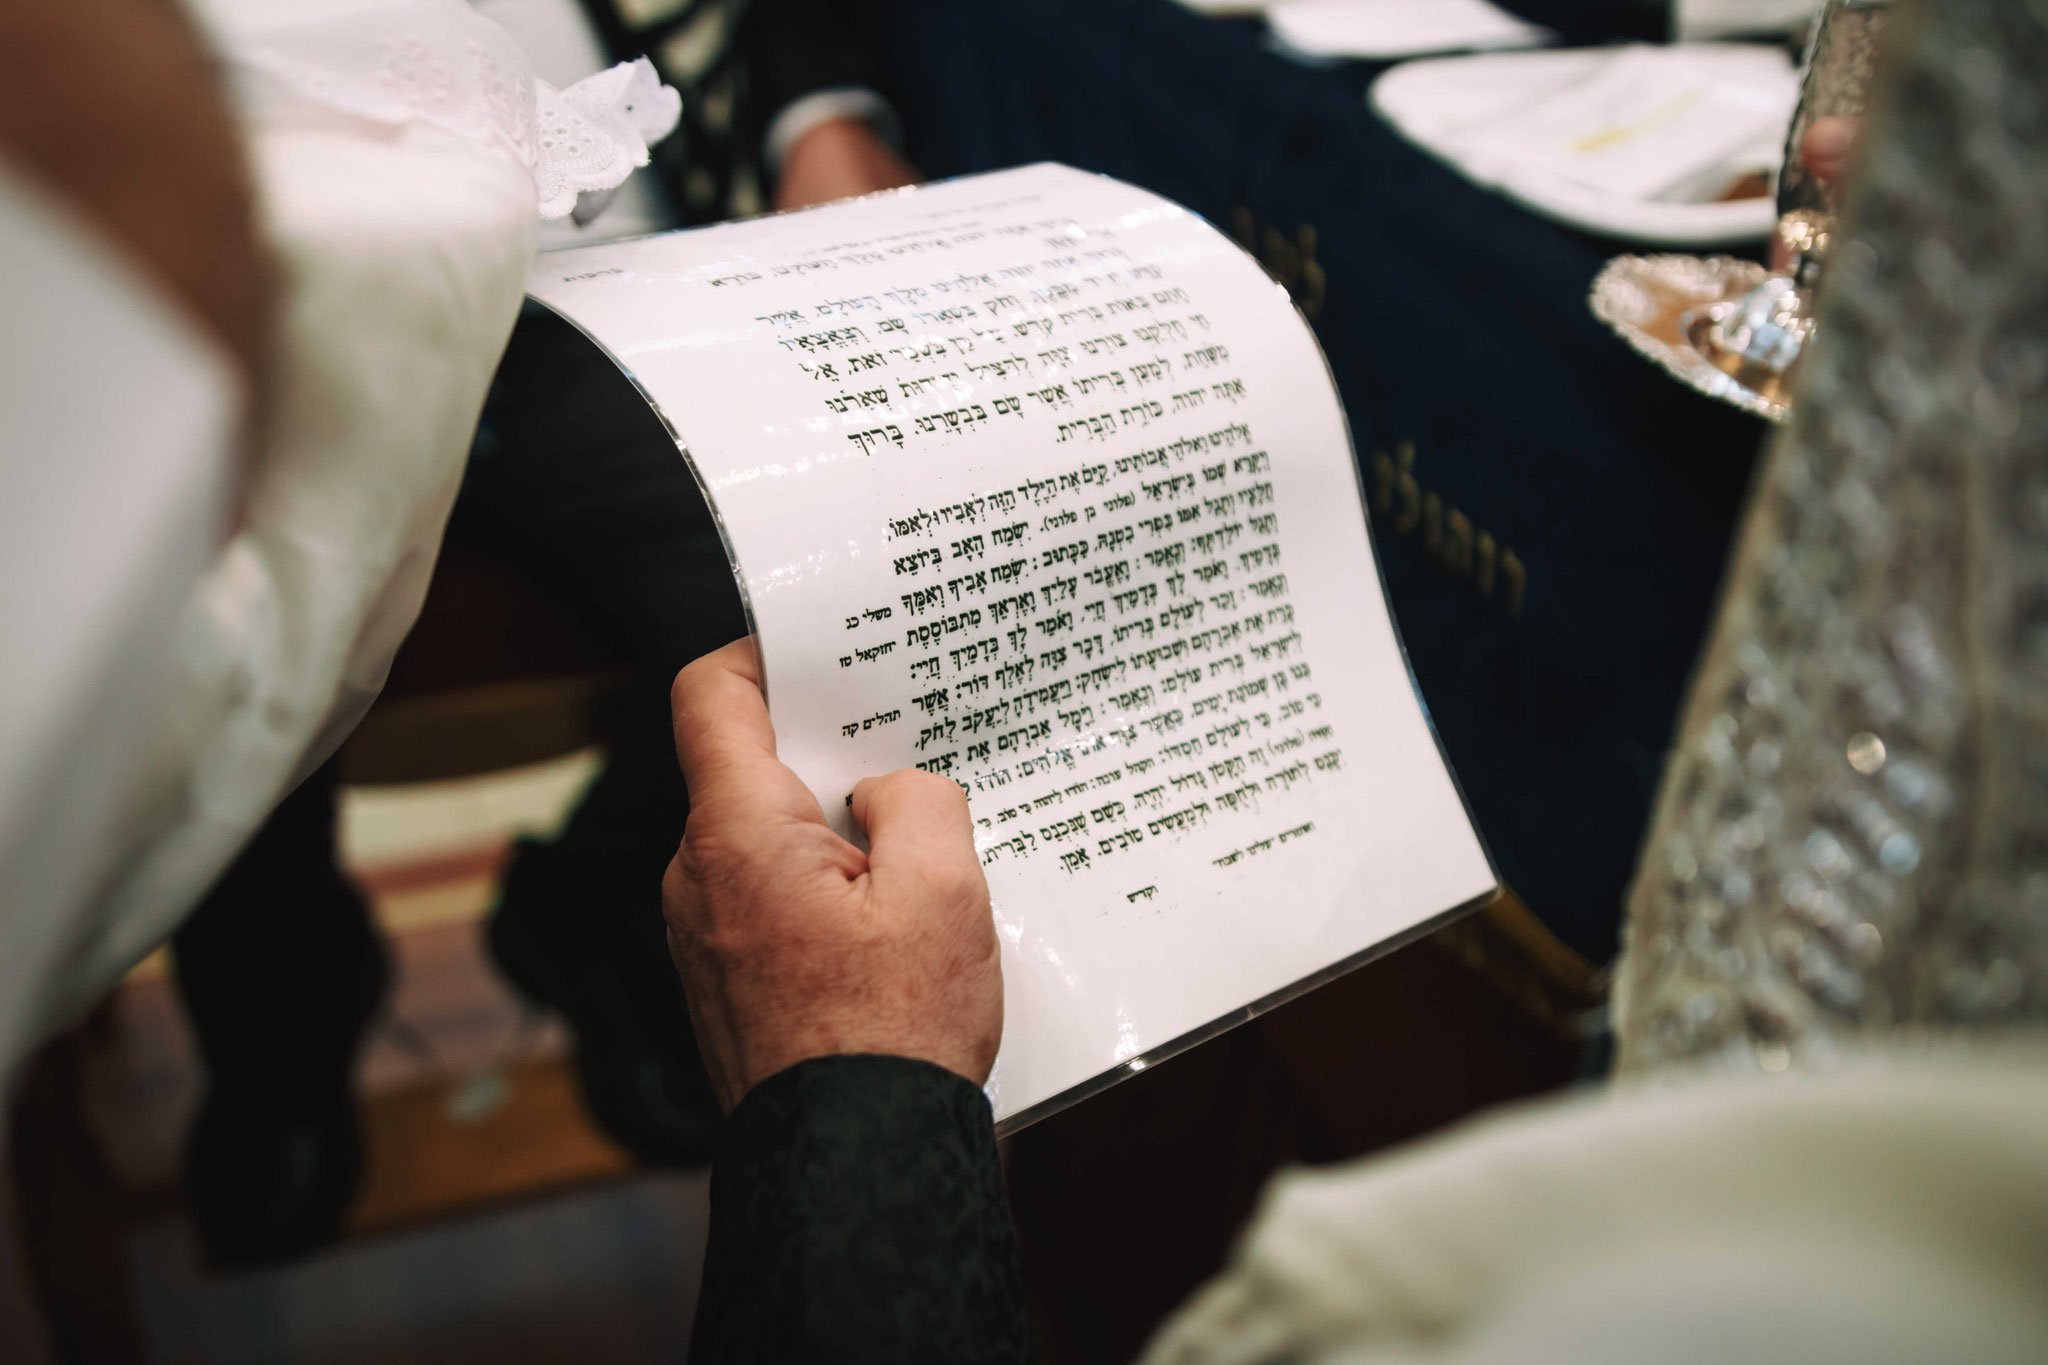 ברכות
אֱלֹהֵינוּ מֶלֶךְ הָעוֹלָם, בּוֹרֵא
אַתָּה יהוה אֱלֹהֵינוּ מֶלֶךְ הָעוֹלָם, אֲשֶׁר
קִדַּשׁ יְדִיד מִבֶּטֶן, וְחֹק בִּשְׁאֵרוֹ שָׂם, וְצֶאֱצָאָיו
חָתַם בְּאוֹת בְּרִית קֹדֶשׁ. עַל כֵּן בִּשְׂכַר זֹאת, אֵל
חַי חֶלְקֵנוּ צוּרֵנוּ צִוָּה לְהַצִּיל יְדִידוּת שְׁאֵרֵנוּ
מִשַּׁחַת, לְמַעַן בְּרִיתוֹ אֲשֶׁר שָׂם בִּבְשָׂרֵנוּ. בָּרוּךְ
אַתָּה יהוה, כּוֹרֵת הַבְּרִית.
אֱלֹהֵינוּ וֵאלֹהֵי אֲבוֹתֵינוּ, קַיֵּם אֶת הַיֶּלֶד הַזֶּה לְאָבִיו וּלְאִמּוֹ,
וְיִקָּרֵא שְׁמוֹ בְּיִשְׂרָאֵל (פלוני בן פלוני). יִשְׂמַח הָאָב בְּיוֹצֵא
חֲלָצָיו וְתָגֵל אִמּוֹ בִּפְרִי בִטְנָהּ, כַּכָּתוּב: יִשְׂמַח אָבִיךָ וְאִמֶּךָ
משלי כג
וְתָגֵל יוֹלַדְתֶּךָ: וְנֶאֱמַר: וָאֶעֱבֹר עָלַיִךְ וָאֶרְאֵךְ מִתְבּוֹסֶסֶת
יחזקאל טז
בְּדָמָיִךְ, וָאֹמַר לָךְ בְּדָמַיִךְ חֲיִי, וָאֹמַר לָךְ בְּדָמַיִךְ חֲיִי:
וְנֶאֱמַר: זָכַר לְעוֹלָם בְּרִיתוֹ, דָּבָר צִוָּה לְאֶלֶף דּוֹר: אֲשֶׁר
תהלים קה
כָּרַת אֶת אַבְרָהָם וּשְׁבוּעָתוֹ לְיִשְׂחָק: וַיַּעֲמִידֶהָ לְיַעֲקֹב לְחֹק,
לְיִשְׂרָאֵל בְּרִית עוֹלָם: וְנֶאֱמַר: וַיָּמָל אַבְרָהָם אֶת יִצְחָק
בְּנוֹ בֶּן שְׁמוֹנַת יָמִים, כַּאֲשֶׁר צִוָּה אֹתוֹ אֱלֹהִים: הוֹדוּ
כִּי טוֹב, כִּי לְעוֹלָם חַסְדּוֹ: הקהל עונה: הודו ליהוה כי טוב, כי
(פלוני) זֶה הַקָּטֹן גָּדוֹל יִהְיֶה. כְּשֵׁם שֶׁנִּכְנַס לַבְּרִית,
יִכָּנֵס לְתוֹרָה וּלְחֻפָּה וּלְמַעֲשִׂים טוֹבִים. אָמֵן.
ואומרים "עלינו לשבח"
וקדיש